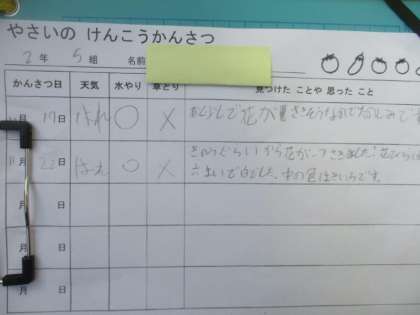 やさいの けんこうかんさつ
2年 5組 名前
かんさつ日 天気 水やり 草とり 見つけた ことや 思った こと
月 17日 はれ ○ × で花が さきそうなのでたのしみです
11月 22日 はれ ○ × きのうぐらいから花が一つさきました
白でした。中の色はきいろです。
月 日
月 日
月 日